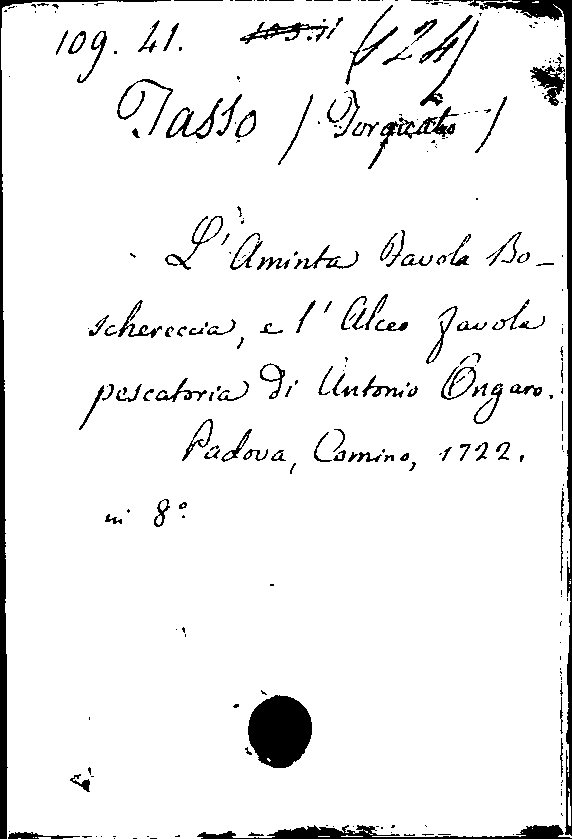 109. 41. 103.11 (124)
Tasso / Torquato /
L'Aminta Favola Bo-
schereccia, e l'Alceo favola
pescatoria di Antonio Ongaro.
Padova, Comino, 1722.
in 8°